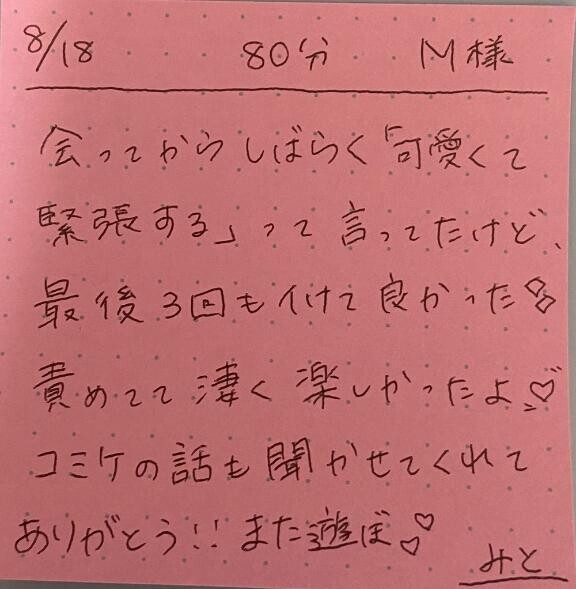 8/18 80分 M様
会ってからしばらく「可愛くて
緊張する」って言ってたけど、
最後3回もイけて良かった
責めてて凄く楽しかったよ♡
コミケの話も聞かせてくれて
ありがとう!!また遊ぼ♡♡
みと